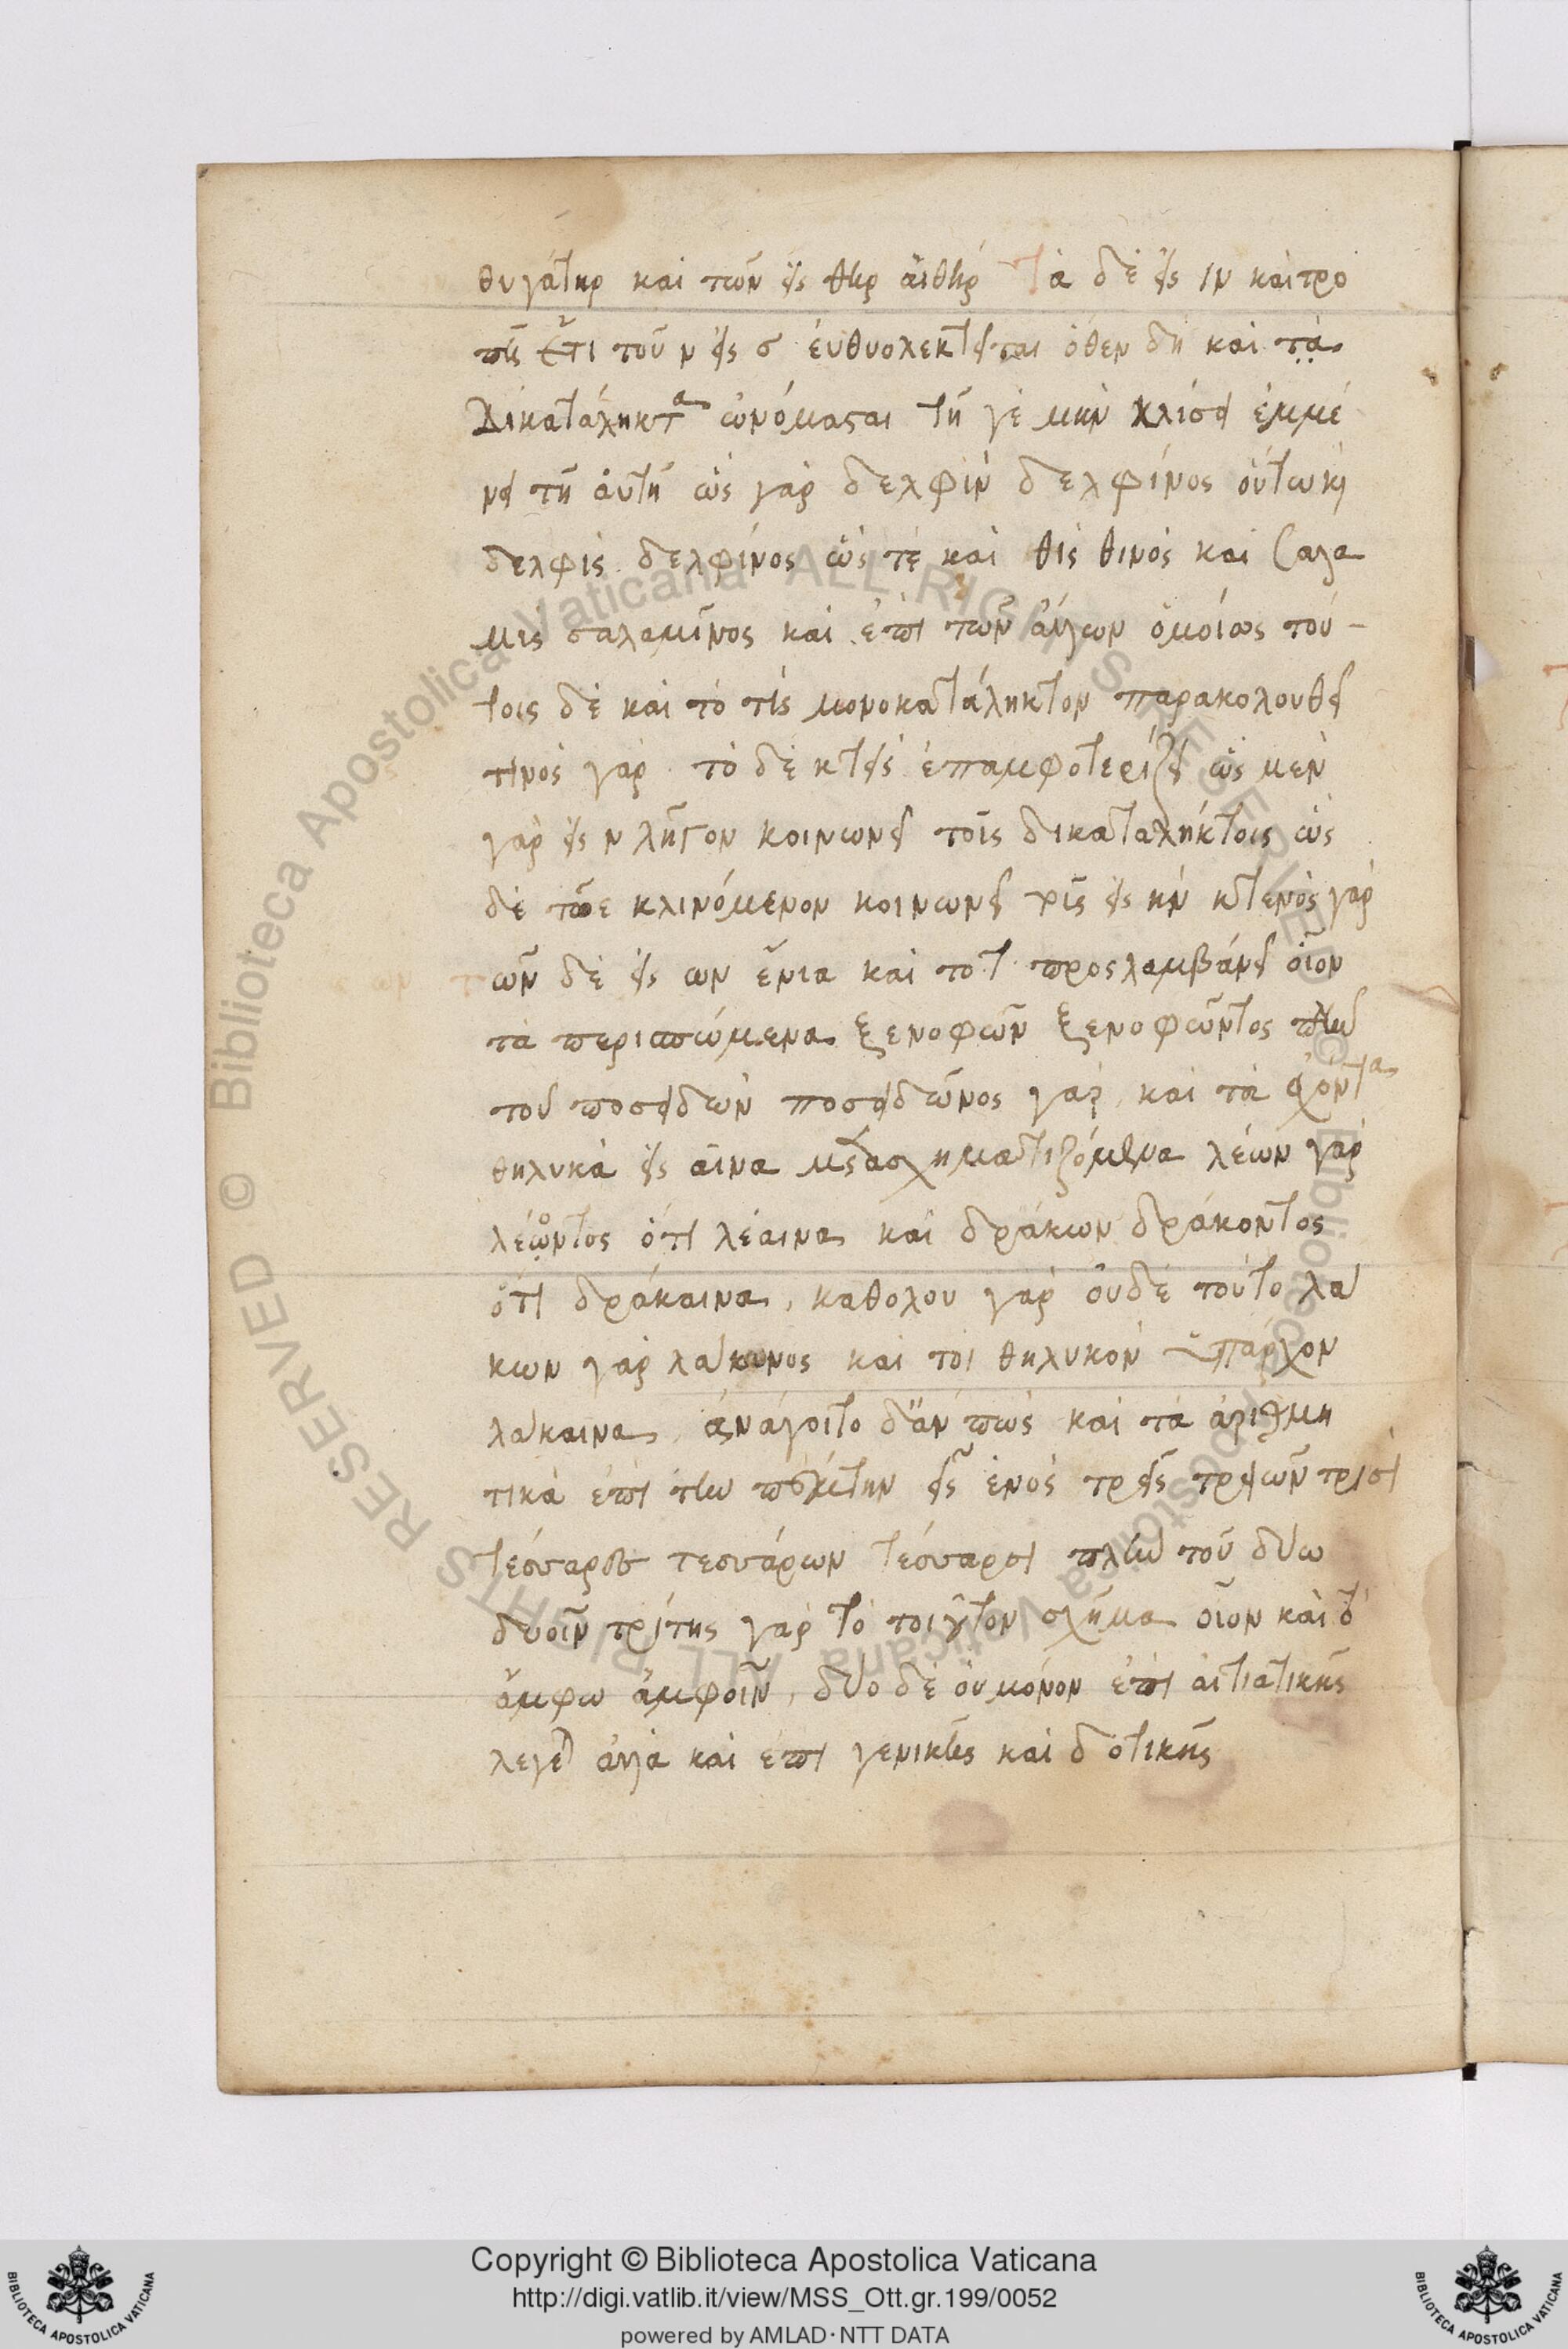 θυγάτηρ καὶ τῶν εἰς θηρ αἰθήρ Τὰ δὲ εἰς ιν καὶ τρο
πῆς ἔτι τοῦ ν εἰς σ εὐθυολεκτεῖται ὅθεν δὴ καὶ τὰ
Δικατάληκτα ὠνόμασται τῆ γε μὴν κλίσει ἐμμέ
νει τῆ αὐτῆ ὡς γὰρ δελφὶν δελφίνος οὕτω καὶ
δελφὶς δελφίνος ὥς τε καὶ θὶς θινὸς καὶ Σαλα
μις σαλαμῖνος καὶ ἐπὶ τῶν ἄλλων ὁμοίως τού-
τοις δὲ καὶ τὸ τὶς μονοκατάληκτον παρακολουθεῖ
τινὸς γάρ. τὸ δὲ κτεὶς ἐπαμφοτερίζει ὡς μὲν
γὰρ εἰς ν λῆγον κοινωνεῖ τοῖς δικαταλήκτοις ὡς
δὲ κλινόμενον κοινωνεῖ τοῖς εἰς ην κτενὸς γάρ
τῶν δὲ εἰς ων ἔνια καὶ τὸ τ προσλαμβάνει οἷον
τὰ περισπώμενα ξενοφῶν ξενοφῶντος πλὴν
τοῦ ποσειδῶν ποσειδῶνος γάρ, καὶ τὰ ἔχοντα
θηλυκὰ εἰς αινα μετασχηματιζόμενα λέων γὰρ
λέοντος ὅτι λέαινα καὶ δράκων δράκοντος
ὅτι δράκαινα, καθόλου γὰρ οὐδὲ τοῦτο λά
κων γὰρ λάκωνος καὶ τοι θηλυκὸν ὑπάρχον
λάκαινα, ἀνάγοιτο δ' ἂν πως καὶ τὰ ἀριθμη
τικὰ ἐπὶ τὴν πέμπτην εἷς ἑνὸς τρεῖς τριῶν τρισὶ
τέσσαρες τεσσάρων τέσσαρσι πλὴν τοῦ δύω
δυοῖν τρίτης γὰρ τὸ τοιοῦτον σχῆμα οἷον καὶ τὸ
ἄμφω ἀμφοῖν, δύο δὲ οὐ μόνον ἐπὶ αἰτιατικῆς
λέγεται ἀλλὰ καὶ ἐπὶ γενικῆς καὶ δοτικῆς
Copyright © Biblioteca Apostolica Vaticana
http://digi.vatlib.it/view/MSS_Ott.gr.199/0052
powered by AMLAD·NTT DATA